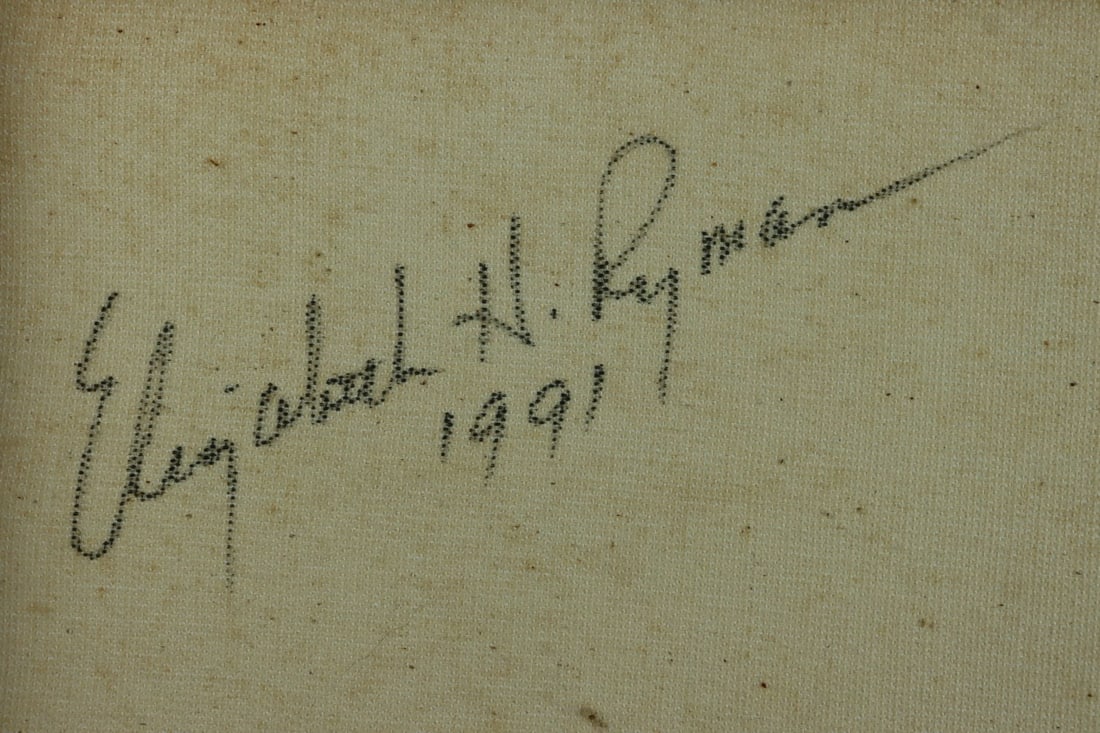 Elizabeth H. Ryman
1991